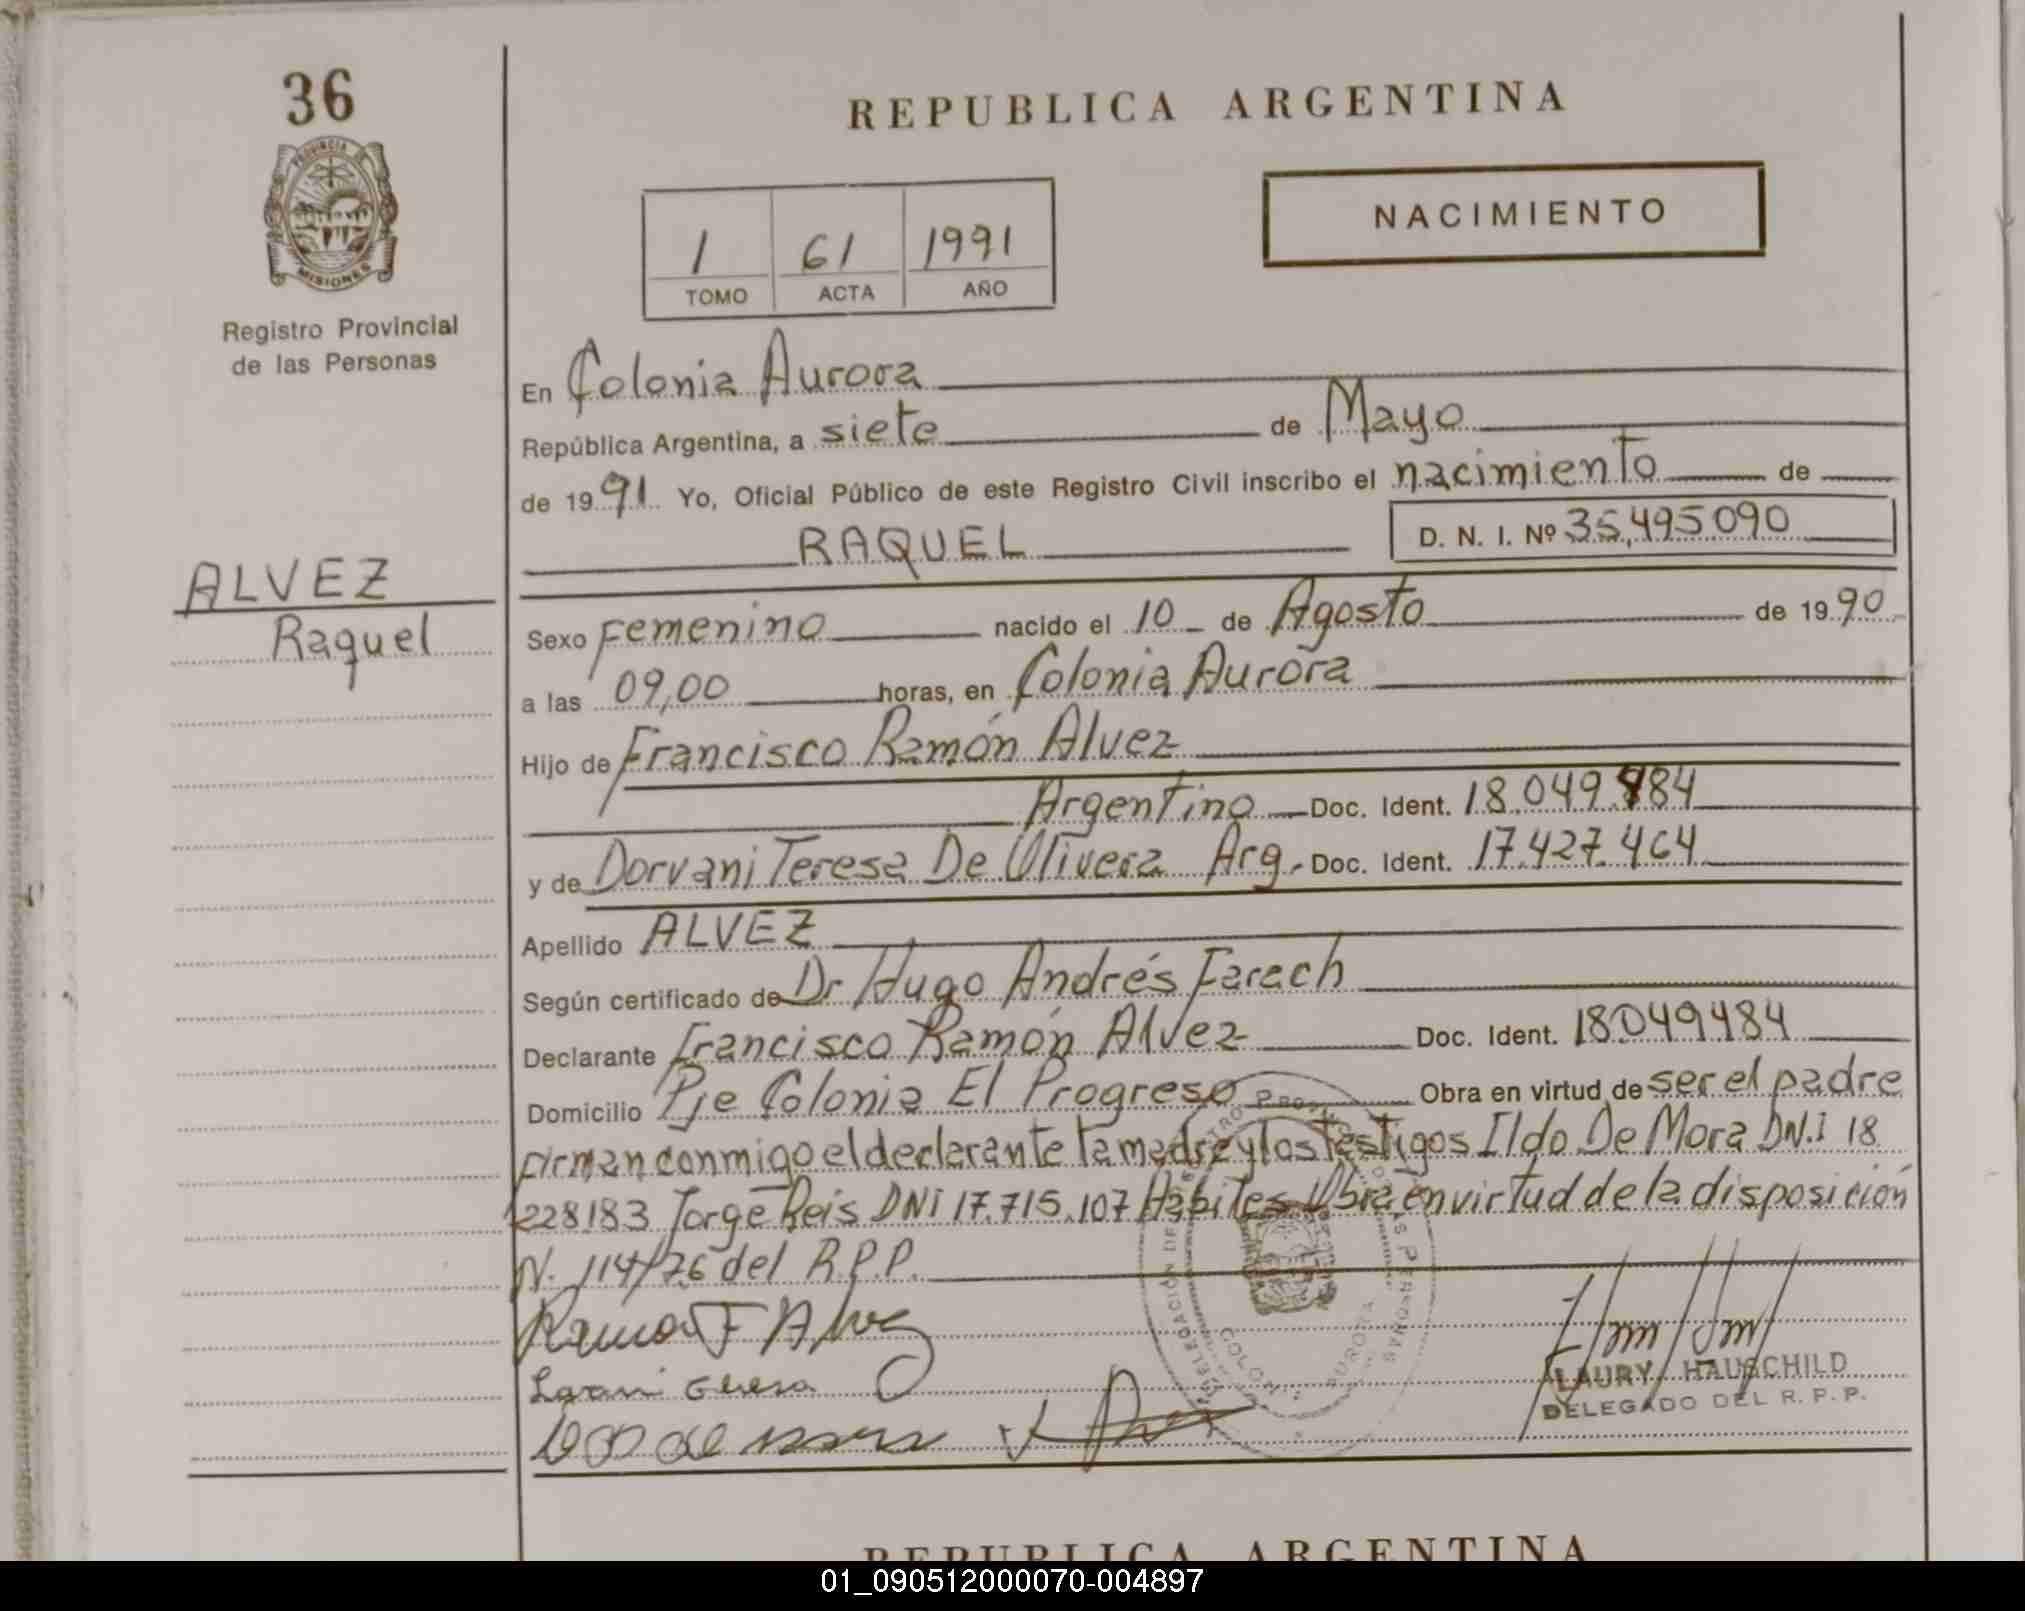 36
PROVINCIA DE
MISIONES
Registro Provincial
de las Personas
ALVEZ
Raquel
REPUBLICA ARGENTINA
1 61 1991
TOMO ACTA AÑO
NACIMIENTO
En Colonia Aurora
República Argentina, a siete de Mayo
de 1991 Yo, Oficial Público de este Registro Civil inscribo el nacimiento de
RAQUEL D. N. I. Nº 35,495090
Sexo Femenino nacido el 10 de Agosto de 1990
a las 09,00 horas, en Colonia Aurora
Hijo de Francisco Ramón Alvez
Argentino Doc. Ident. 18.049.484
y de Dorvani Teresa De Olivera Arg. Doc. Ident. 17.427.464
Apellido ALVEZ
Según certificado de Dr Hugo Andrés Farach
Declarante Francisco Ramón Alvez Doc. Ident. 18049484
Domicilio Pje Colonia El Progreso Obra en virtud de ser el padre
firman conmigo el declarante la madre y los testigos Ildo De Mora DN.I 18
228183 Jorge Reis DNI 17.715.107 Habiles Obra en virtud de la disposición
N. 114/76 del R.P.P.
Ramon F Alvez
LAURY HAUSCHILD
DELEGADO DEL R. P. P.
REPUBLICA ARGENTINA
01_090512000070-004897